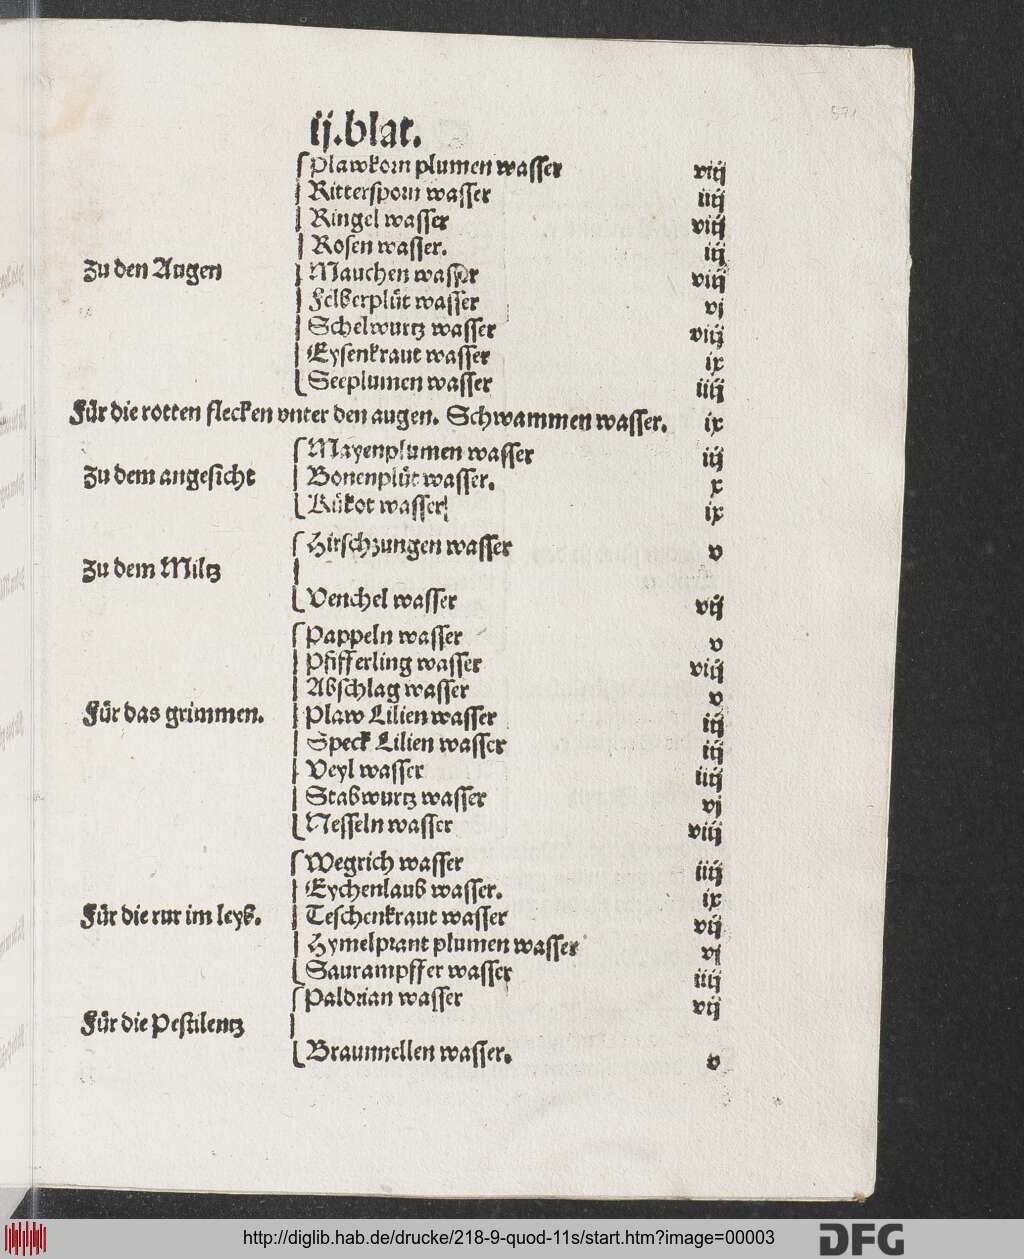 ij.blat.
Plawkorn plumen wasser viij
Rittersporn wasser iiij
Ringel wasser viij
Rosen wasser. iij
Zu den Augen Mauchen wasser viij
Felberplüt wasser vj
Schelwurtz wasser viij
Eysenkraut wasser ix
Seeplumen wasser iiij
Für die rotten flecken vnter den augen. Schwammen wasser. ix
Mayenplumen wasser iij
Zu dem angesicht Bonenplüt wasser. x
Kükot wasser ix
Hirschzungen wasser v
Zu dem Miltz
Venchel wasser vij
Pappeln wasser v
Pfifferling wasser viij
Abschlag wasser v
Für das grimmen. Plaw Lilien wasser iij
Speck Lilien wasser iij
Veyl wasser iiij
Stabwurtz wasser vj
Nesseln wasser viij
Wegrich wasser iiij
Eychenlaub wasser. ix
Für die rur im leyb. Teschenkraut wasser vij
Hymelprant plumen wasser vj
Saurampffer wasser iiij
Paldrian wasser vij
Für die Pestilentz
Braunnellen wasser. v
http://diglib.hab.de/drucke/218-9-quod-11s/start.htm?image=00003
DFG